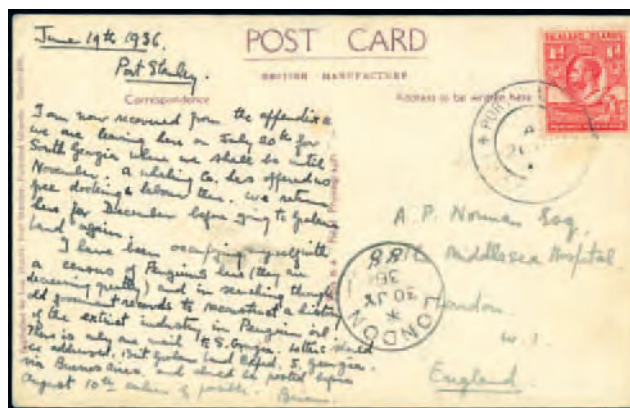 June 19th 1936.
Port Stanley.
POST CARD
BRITISH MANUFACTURE
Correspondence
Address to be written here
FALKLAND ISLANDS
1d 1d
PORT
I am now recovered from the appendix &
we are leaving here on July 20th for
South Georgia where we shall be until
November. A whaling Co. has offered us
free docking & labour there. We return
here for December before going to Graham
Land again.
I have been occupying myself with
a census of Penguins here (they are
decreasing greatly) and in searching through
old government records to reconstruct a history
of the extinct industry in Penguin oil!
There is only one mail to S. Georgia. Letters should
be addressed. Brit. Graham Land Exped. S. Georgia.
via Buenos Aires. and should be posted before
August 10th if possible. Brian.
A. P. Norman Esq.
Middlesex Hospital
London
W. 1.
England.
LONDON
30 JY
36